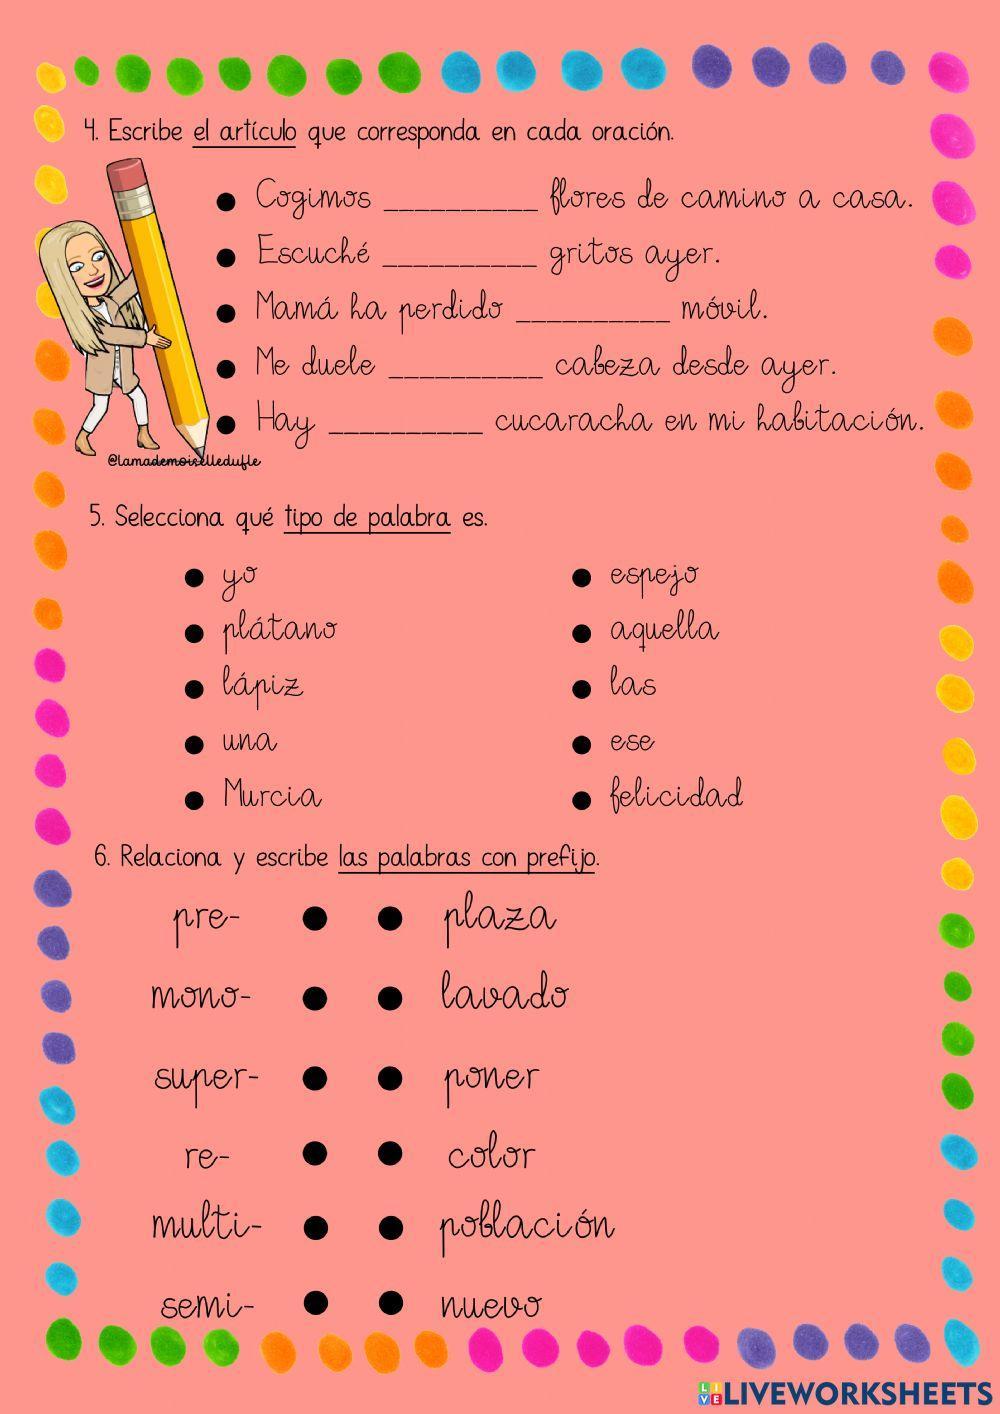 4. Escribe el artículo que corresponda en cada oración.
Cogimos __________ flores de camino a casa.
Escuché __________ gritos ayer.
Mamá ha perdido __________ móvil.
Me duele __________ cabeza desde ayer.
Hay __________ cucaracha en mi habitación.
@lamademoiselledufle
5. Selecciona qué tipo de palabra es.
yo
plátano
lápiz
una
Murcia
espejo
aquella
las
ese
felicidad
6. Relaciona y escribe las palabras con prefijo.
pre- plaza
mono- lavado
super- poner
re- color
multi- población
semi- nuevo
LIVE LIVEWORKSHEETS